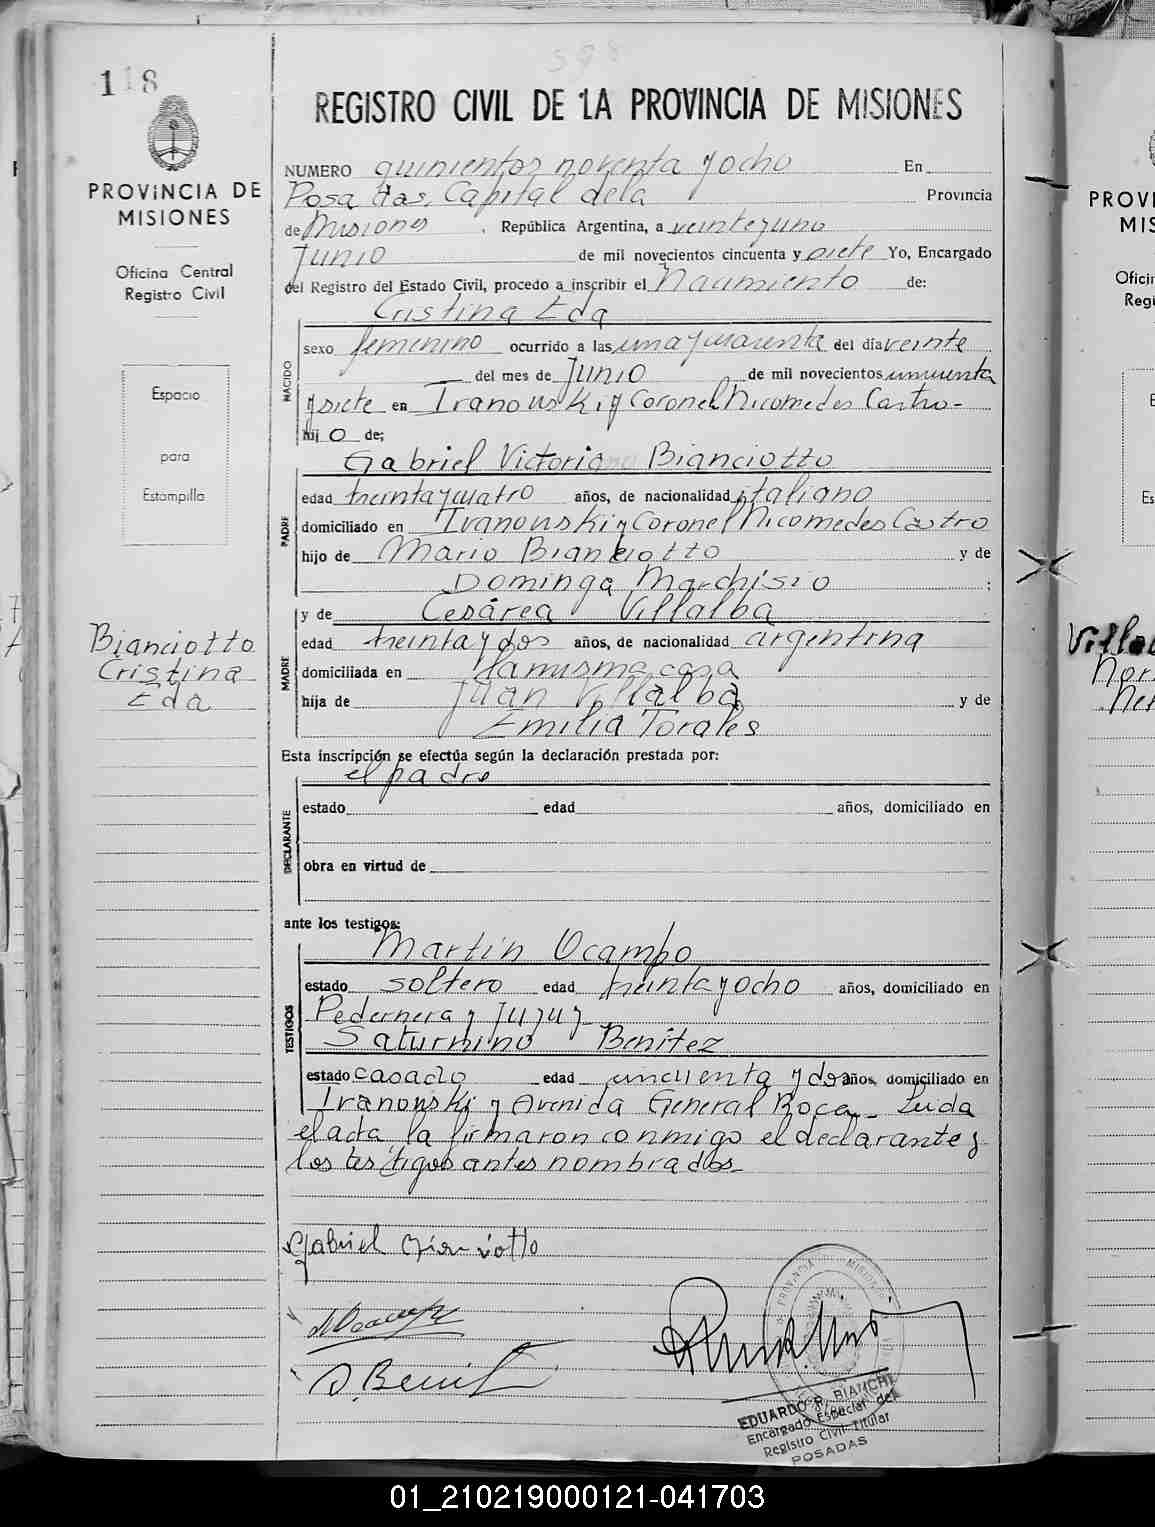 598
118
REGISTRO CIVIL DE LA PROVINCIA DE MISIONES
PROVINCIA DE
MISIONES
Oficina Central
Registro Civil
Espacio
para
Estampilla
Bianciotto
Cristina
Eda
NUMERO quinientos noventa y ocho En
Posadas, Capital de la Provincia
de Misiones, República Argentina, a veinteyuno
Junio de mil novecientos cincuenta y siete Yo, Encargado
del Registro del Estado Civil, procedo a inscribir el Nacimiento de:
Cristina Eda
NACIDO
sexo femenino ocurrido a las una y cuarenta del día veinte
del mes de Junio de mil novecientos cincuenta
y siete en Ivanowski y Coronel Nicomedes Castro-
hijo de;
Gabriel Victoriano Bianciotto
PADRE
edad treinta y cuatro años, de nacionalidad italiano
domiciliado en Ivanowski y Coronel Nicomedes Castro
hijo de Mario Bianciotto y de
Dominga Marchisio ;
y de Cesárea Villalba
MADRE
edad treinta y dos años, de nacionalidad argentina
domiciliada en la misma casa
hija de Juan Villalba y de
Emilia Torales
Esta inscripción se efectúa según la declaración prestada por:
el padre
DECLARANTE
estado edad años, domiciliado en
obra en virtud de
ante los testigos:
Martín Ocampo
TESTIGOS
estado soltero edad treinta y ocho años, domiciliado en
Pedernera y Jujuy
Saturnino Benítez
estado casado edad cincuenta y dos años, domiciliado en
Ivanowski y Avenida General Roca- Leida
el acta la firmaron conmigo el declarante y
los testigos antes nombrados-
Gabriel Bianciotto
S. Benit
PROVINCIA MISIONES
EDUARDO R. BIANCHI
Encargado Especial del
Registro Civil Titular
POSADAS
PROVI
MIS
Oficin
Regi
E
Es
Villa
Nor
Ne
01_210219000121-041703